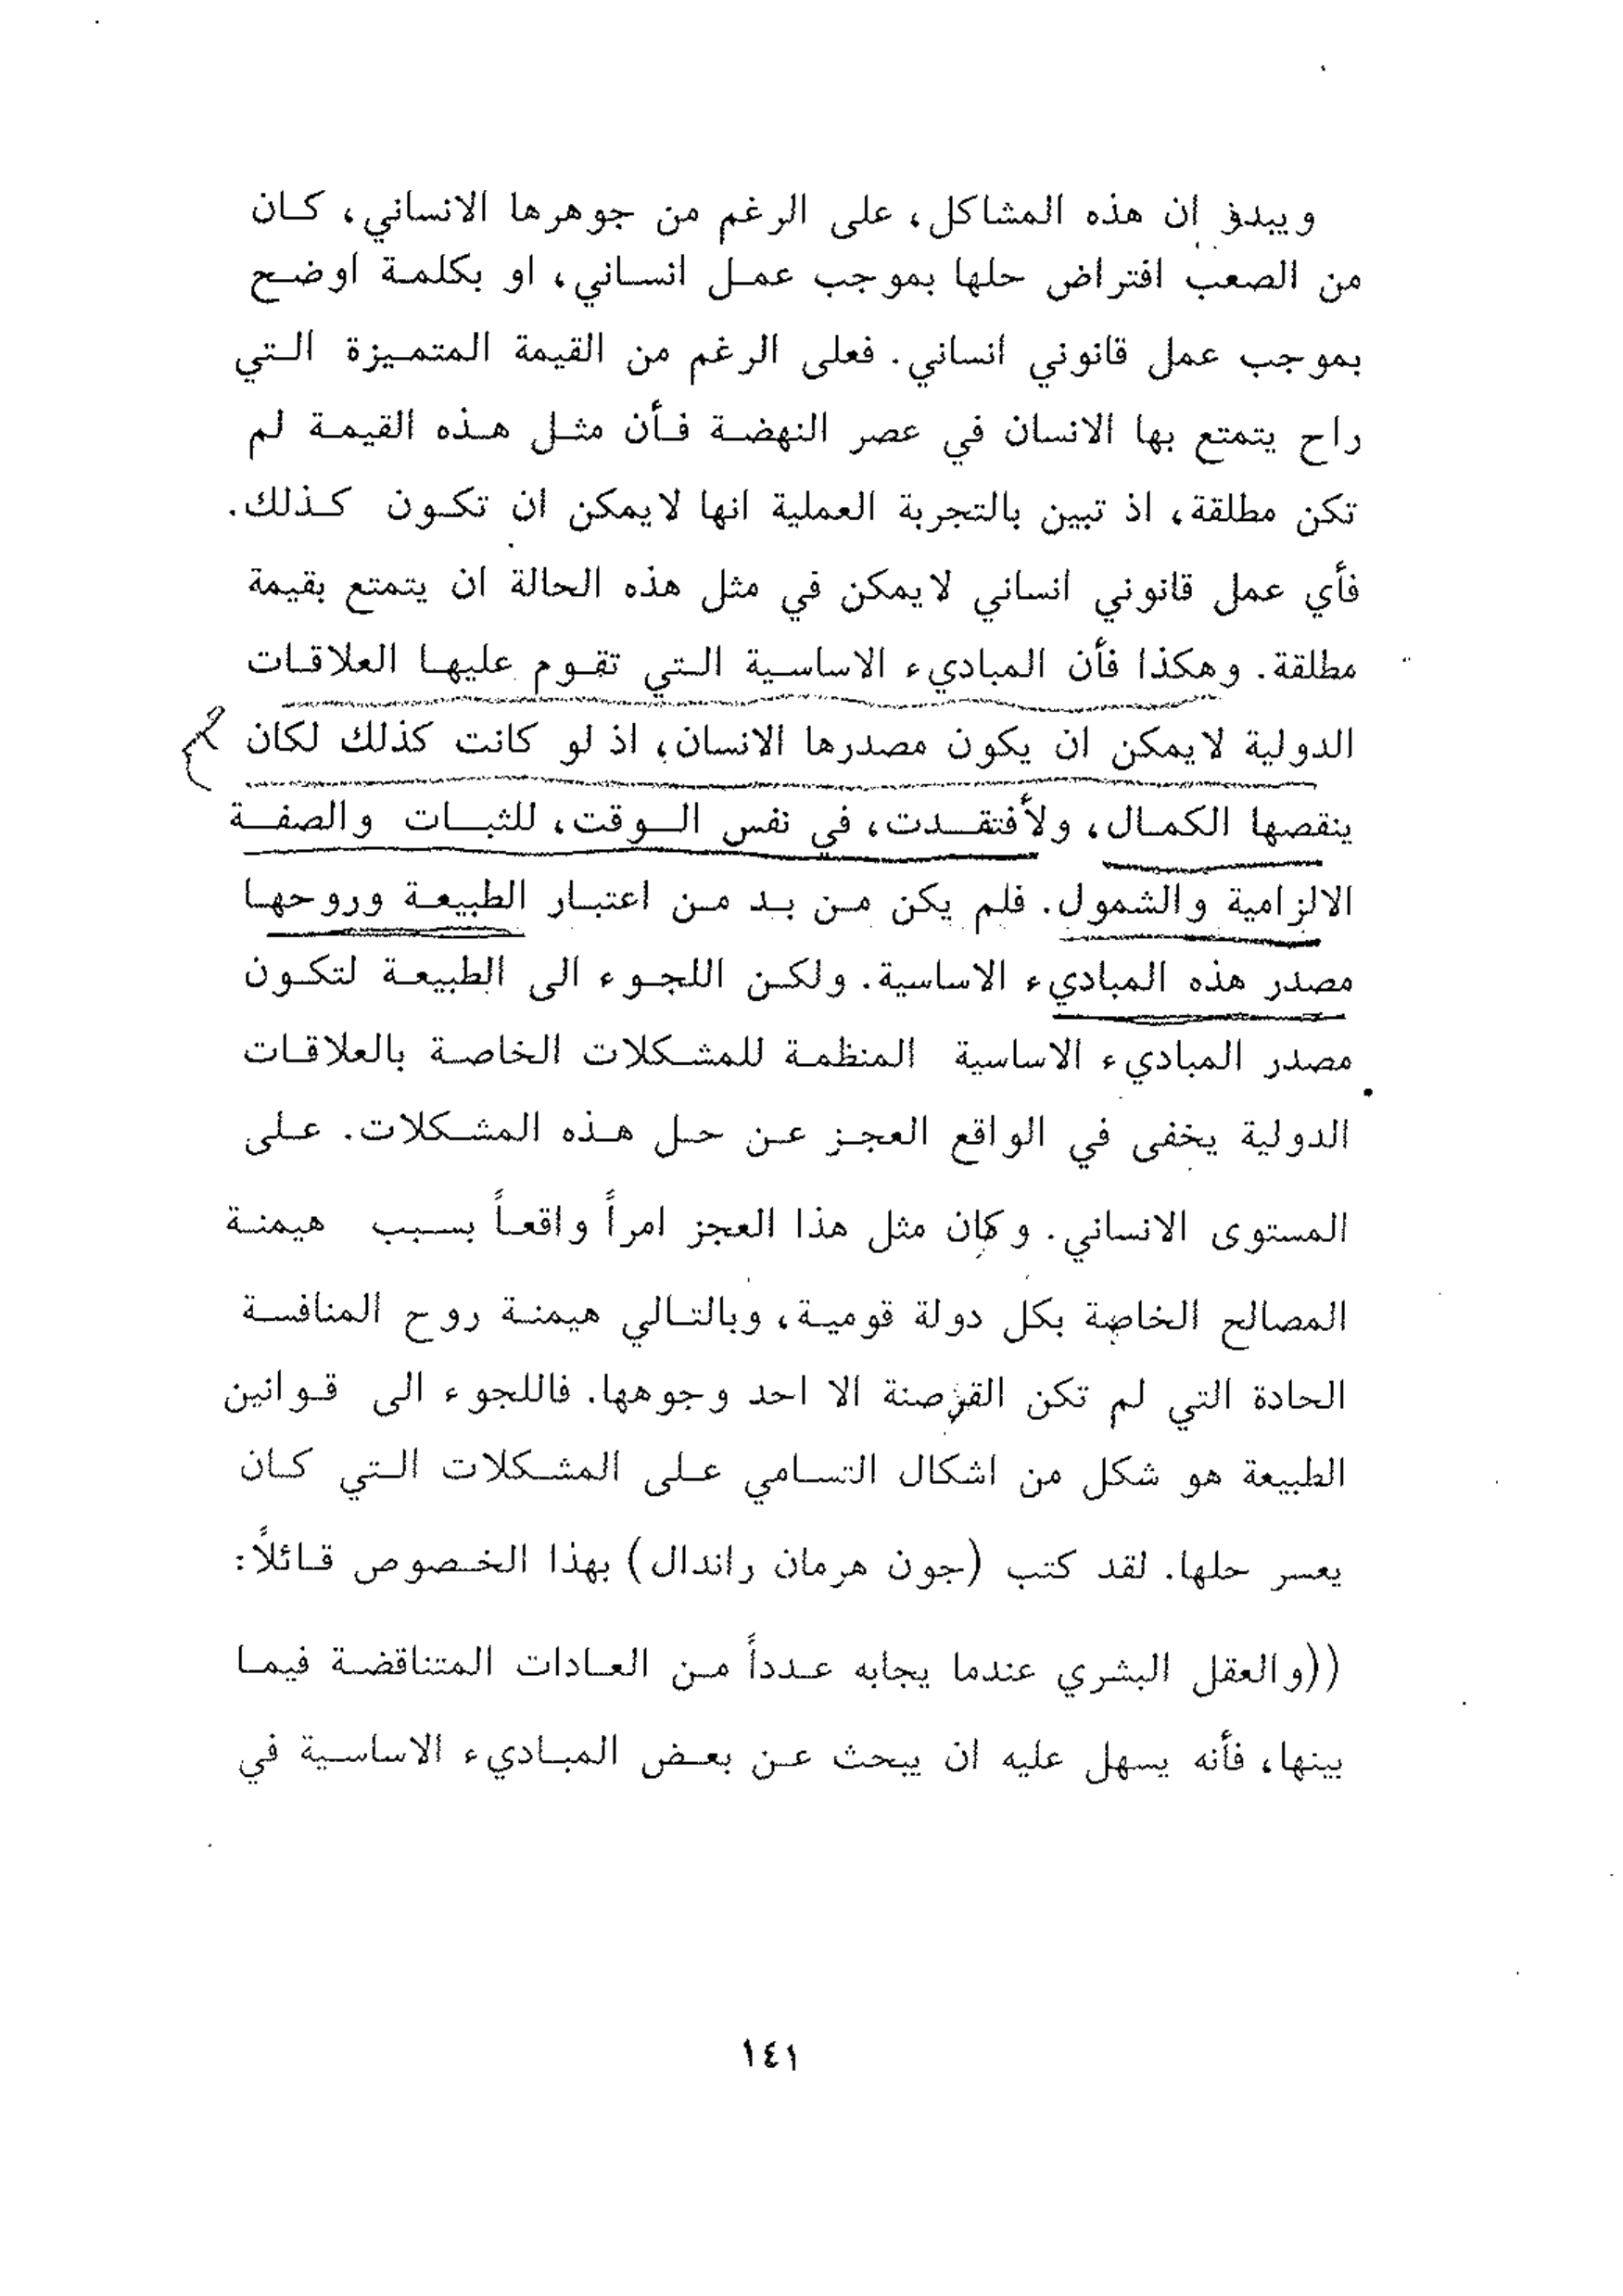 ويبدو ان هذه المشاكل، على الرغم من جوهرها الانساني، كان
من الصعب افتراض حلها بموجب عمل انساني، او بكلمة اوضح
بموجب عمل قانوني انساني. فعلى الرغم من القيمة المتميزة التي
راح يتمتع بها الانسان في عصر النهضة فأن مثل هذه القيمة لم
تكن مطلقة، اذ تبين بالتجربة العملية انها لايمكن ان تكون كذلك.
فأي عمل قانوني انساني لايمكن في مثل هذه الحالة ان يتمتع بقيمة
مطلقة. وهكذا فأن المباديء الاساسية التي تقوم عليها العلاقات
الدولية لايمكن ان يكون مصدرها الانسان، اذ لو كانت كذلك لكان
ينقصها الكمال، ولأفتقدت، في نفس الوقت، للثبات والصفة
الالزامية والشمول. فلم يكن من بد من اعتبار الطبيعة وروحها
مصدر هذه المباديء الاساسية. ولكن اللجوء الى الطبيعة لتكون
مصدر المباديء الاساسية المنظمة للمشكلات الخاصة بالعلاقات
الدولية يخفى في الواقع العجز عن حل هذه المشكلات. على
المستوى الانساني. وكان مثل هذا العجز امراً واقعاً بسبب هيمنة
المصالح الخاصة بكل دولة قومية، وبالتالي هيمنة روح المنافسة
الحادة التي لم تكن القرصنة الا احد وجوهها. فاللجوء الى قوانين
الطبيعة هو شكل من اشكال التسامي على المشكلات التي كان
يعسر حلها. لقد كتب (جون هرمان راندال) بهذا الخصوص قائلاً:
((والعقل البشري عندما يجابه عدداً من العادات المتناقضة فيما
بينها، فأنه يسهل عليه ان يبحث عن بعض المباديء الاساسية في
١٤١